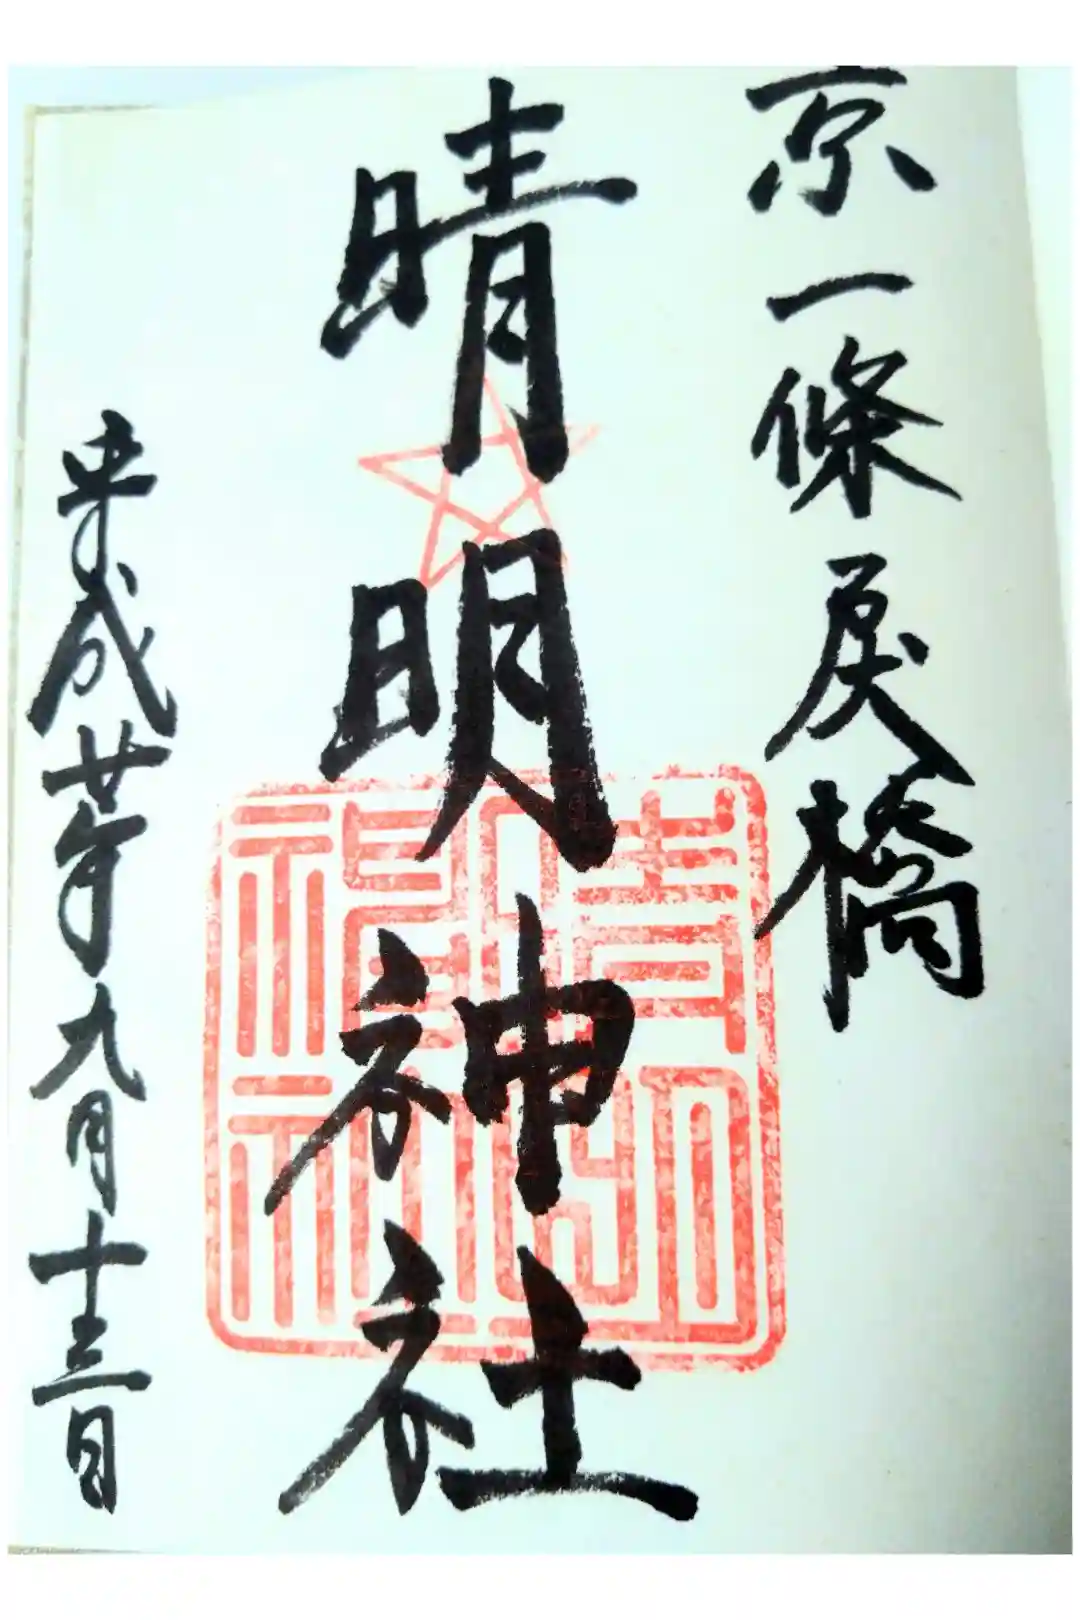 京一條戻橋
晴明神社
晴明神社
平成廿年九月十三日